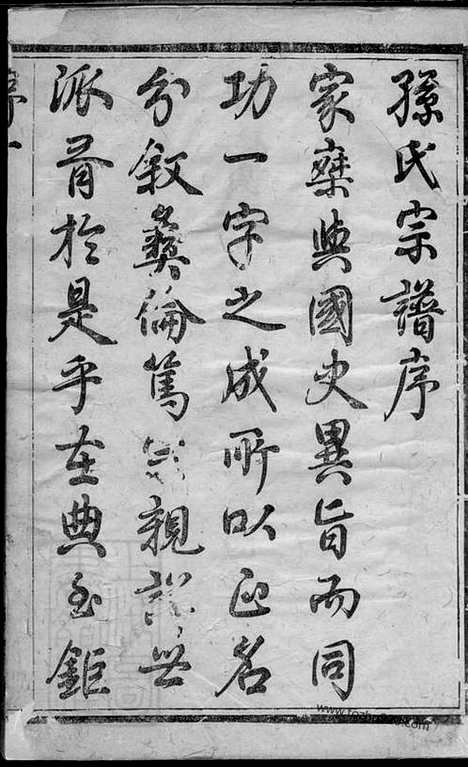 孫氏宗譜序
家乘與國史異旨而同
功一字之成所以正名
分敘彝倫篤親世
派胥於是乎在典至鉅
序一
www.fozhu920.com